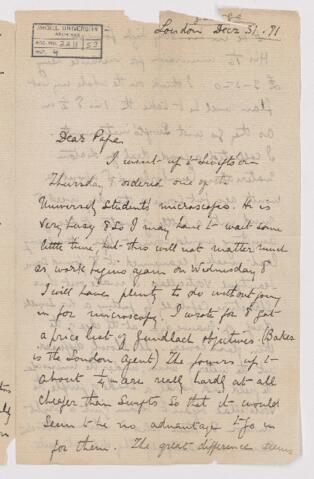 McGILL UNIVERSITY
ARCHIVES
ACC. NO. 2211 | 53
REF. 4
London Decr 31. 91
Dear Papa,
I went up to Swifts on
Thursday & ordered one of the
University Students microscopes. He is
very busy & so I may have to wait some
little time, but this will not matter much
as work begins again on Wednesday &
I will have plenty to do without going
in for microscopy. I wrote for & got
a price list of Gundlach objectives (Baker
is the London Agent) The powers up to
about 1/4 in are really hardly at all
cheaper than Swifts so that it would
seem to be no advantage to go in
for them. The great difference seems